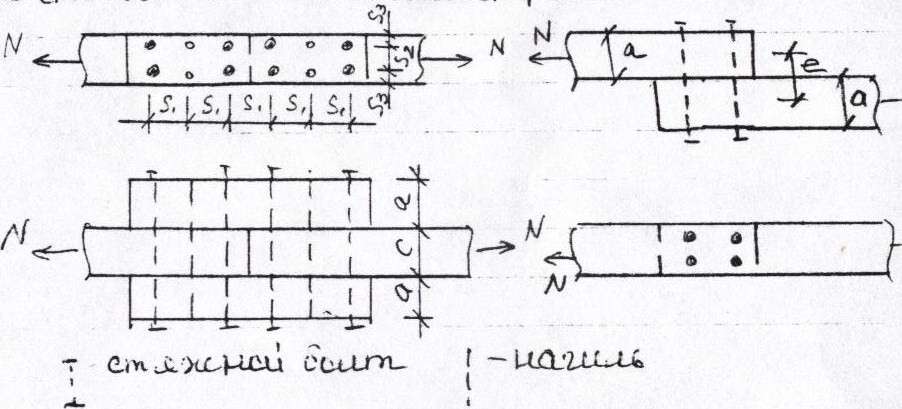 N S₃ S₂ S₃ N
S₁ S₁ S₁ S₁ S₁
N a e a
N a c a N
N
- стяжной болт
- нагиль